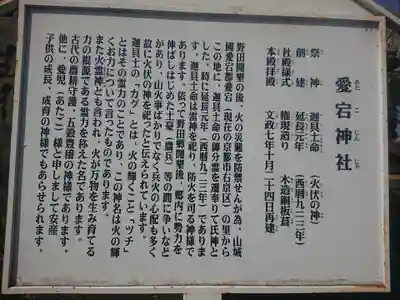 愛宕神社
あたごじんじゃ
祭神 迦具土命 (火伏の神)
創建 延長元年 (西暦九二三年)
社殿様式 権現造り 木造銅板葺
本殿拝殿 文政七年十月二十四日再建
野田開墾の後、火の災難を防禦せんが為、山城
國愛宕郡愛宕(現在の京都市右京区)の里から
この地に、迦具土命の御分霊を遷奉りて氏神と
した。時に延長元年(西暦九二三年)でありま
す。迦具土命は雷神を祀り、防火を司る神様で
あります。依って野田郷開墾後、郷内に勢力を
伸ばしはじめた士豪(農兵)等の間に争いなど
があり、山火事ばかりでなく兵火の心配も多く
故に火伏の神を祀ったと伝えられています。
迦具土の「カグ」とは、火の輝くこと、「ツチ」
とはその霊力のことであり、この神名は火の輝
くお力について言ったものであります。
また火霊とも言われ、火が万物を生み育てる
力の根源である霊力を称えた名であります。
古代の農耕守護、五穀豊穣の神様であります。
他に、愛児(あたこ)様と申しまして安産
子供の成長、成育の神様でもあらせられます。